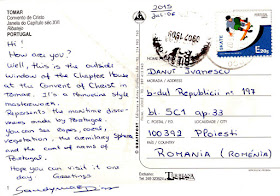 TOMAR
Convento de Cristo
Janela do Capítulo séc.XVI
Ribatejo
PORTUGAL
Hi!
How are you?
Well, this is the outside
window of the Chapter House
at the Convent of Christ in
Tomar. It's a Manueline style
masterwork.
Represents the maritime disco-
veries made by Portugal.
You can see ropes, corals,
vegetation, the armillary sphere
and the coat of arms of
Portugal.
Hope you can visit it one
day. Greetings
2015
Jul-06
SKATE
E20g
PORTUGAL
DANUT IVANESCU
b-dul Republicii nº 197
bl. 5C1 ap. 33
100392 Ploiesti
ROMANIA (ROMÉNIA)